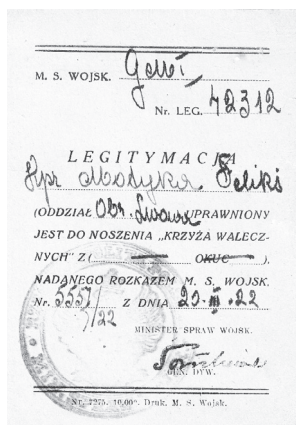 M. S. WOJSK.
Nr. LEG. 42312
LEGITYMACJA
Kpr Madyka Feliks
(ODDZIAŁ Obr. Lwowa UPRAWNIONY
JEST DO NOSZENIA „KRZYŻA WALECZ-
NYCH" Z( OKUC ).
NADANEGO ROZKAZEM M. S. WOJSK.
Nr. 5557/22 Z DNIA 23.III.22
MINISTER SPRAW WOJSK.
GEN. DYW.
Nr. 7275. 10,000. Druk. M. S. Wojsk.